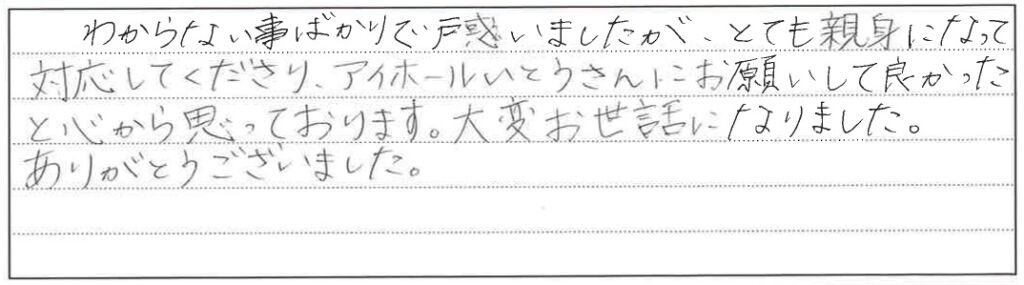 わからない事ばかりで戸惑いましたが、とても親身になって
対応してくださり、アイホールいとうさんにお願いして良かった
と心から思っております。大変お世話になりました。
ありがとうございました。